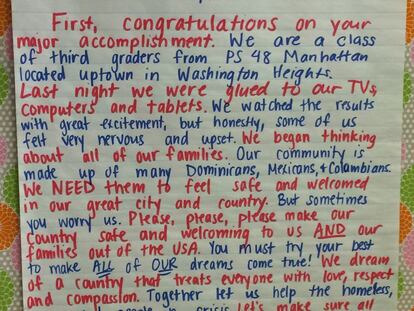 First, congratulations on your
major accomplishment. We are a class
of third graders from PS 48 Manhattan
located uptown in Washington Heights.
Last night we were glued to our TVs,
computers and tablets. We watched the results
with great excitement, but honestly, some of us
felt very nervous and upset. We began thinking
about all of our families. Our community is
made up of many Dominicans, Mexicans, & Colombians.
We NEED them to feel safe and welcomed
in our great city and country. But sometimes
you worry us. Please, please, please make our
country safe and welcoming to us AND our
families out of the USA. You must try your best
to make ALL of OUR dreams come true! We dream
of a country that treats everyone with love, respect
and compassion. Together let us help the homeless,
people in crisis. Let's make sure all